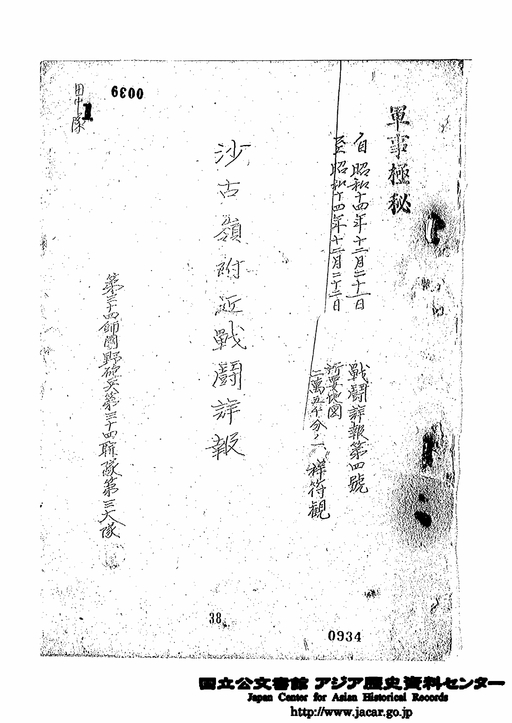 軍事極秘
自昭和十四年十二月二十一日
至昭和十四年十二月二十二日
戰鬪詳報第四號
所要地図
二萬五千分ノ一 祥符觀
沙古嶺附近戰鬪詳報
第三十四師團野砲兵第三十四聯隊第三大隊
0039
田中隊
1
38
0934
国立公文書館 アジア歴史資料センター
Japan Center for Asian Historical Records
http://www.jacar.go.jp